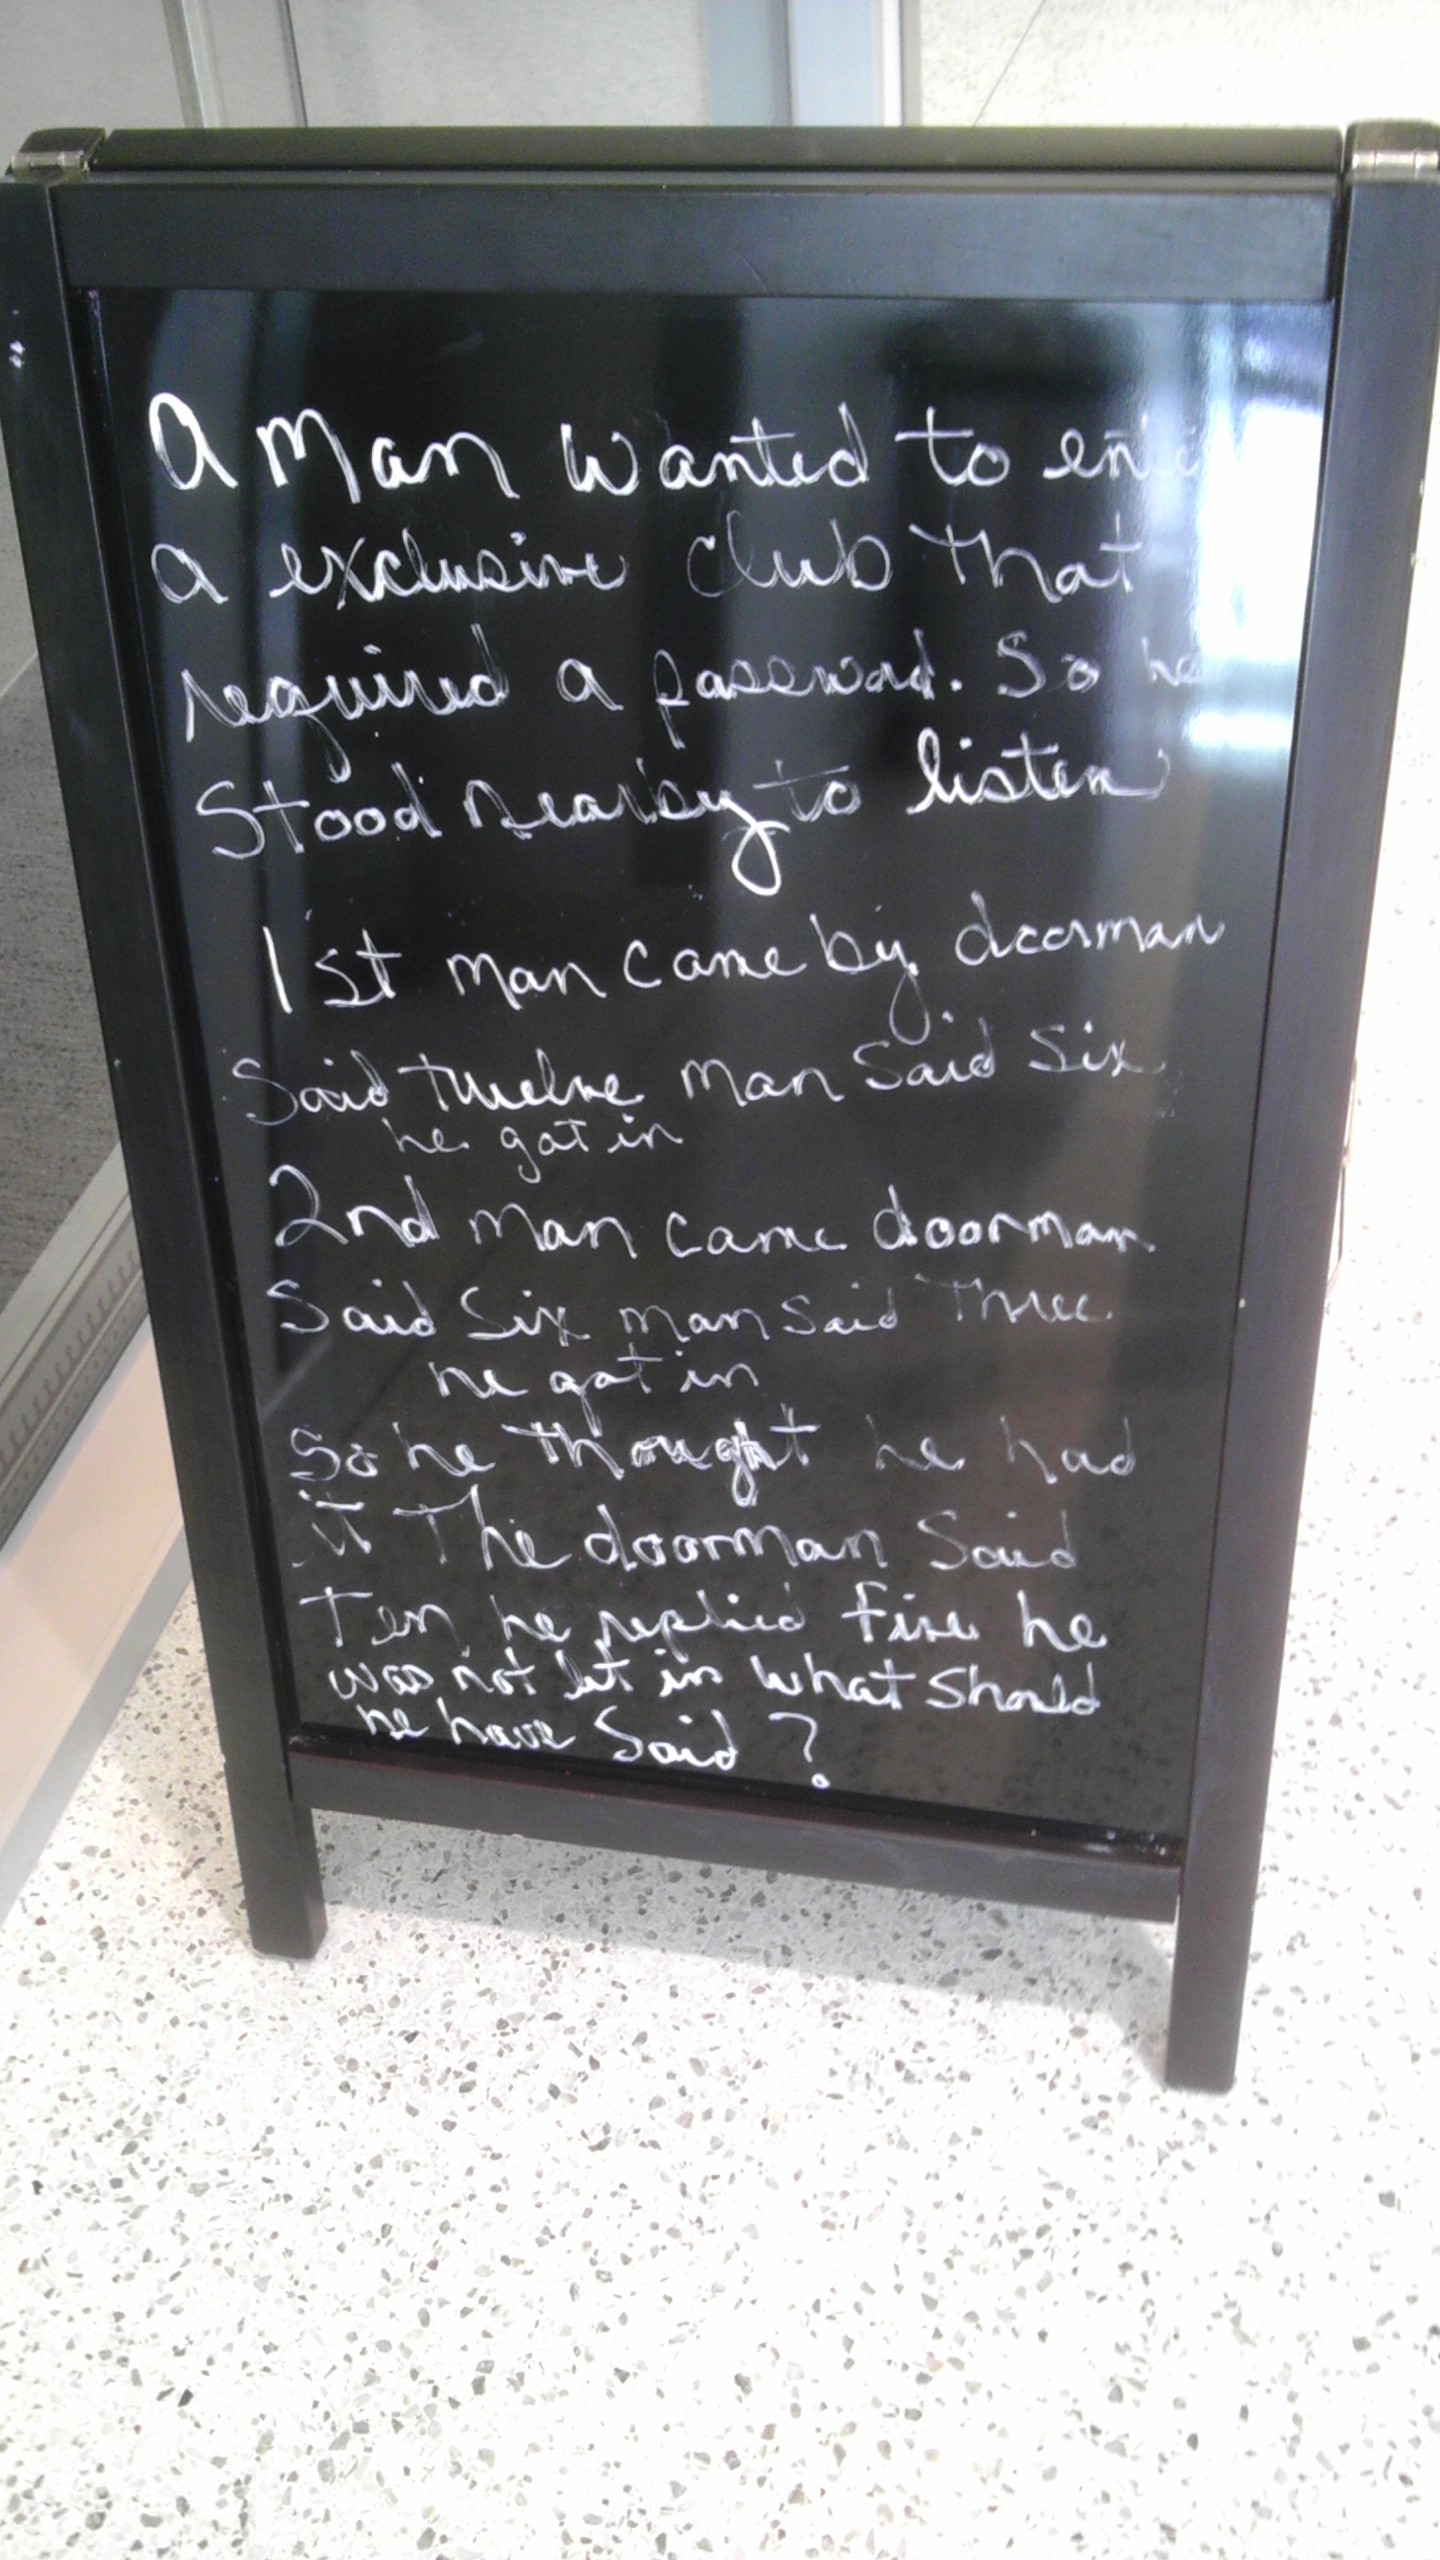 A Man Wanted to ente
a exclusive club that
required a password. So he
Stood nearby to listen
1st man came by doorman
Said twelve man Said Six
he got in
2nd man came doorman
Said Six man said Three
he got in
So he thought he had
it The doorman Said
Ten he replied five he
was not let in what Should
he have Said ?